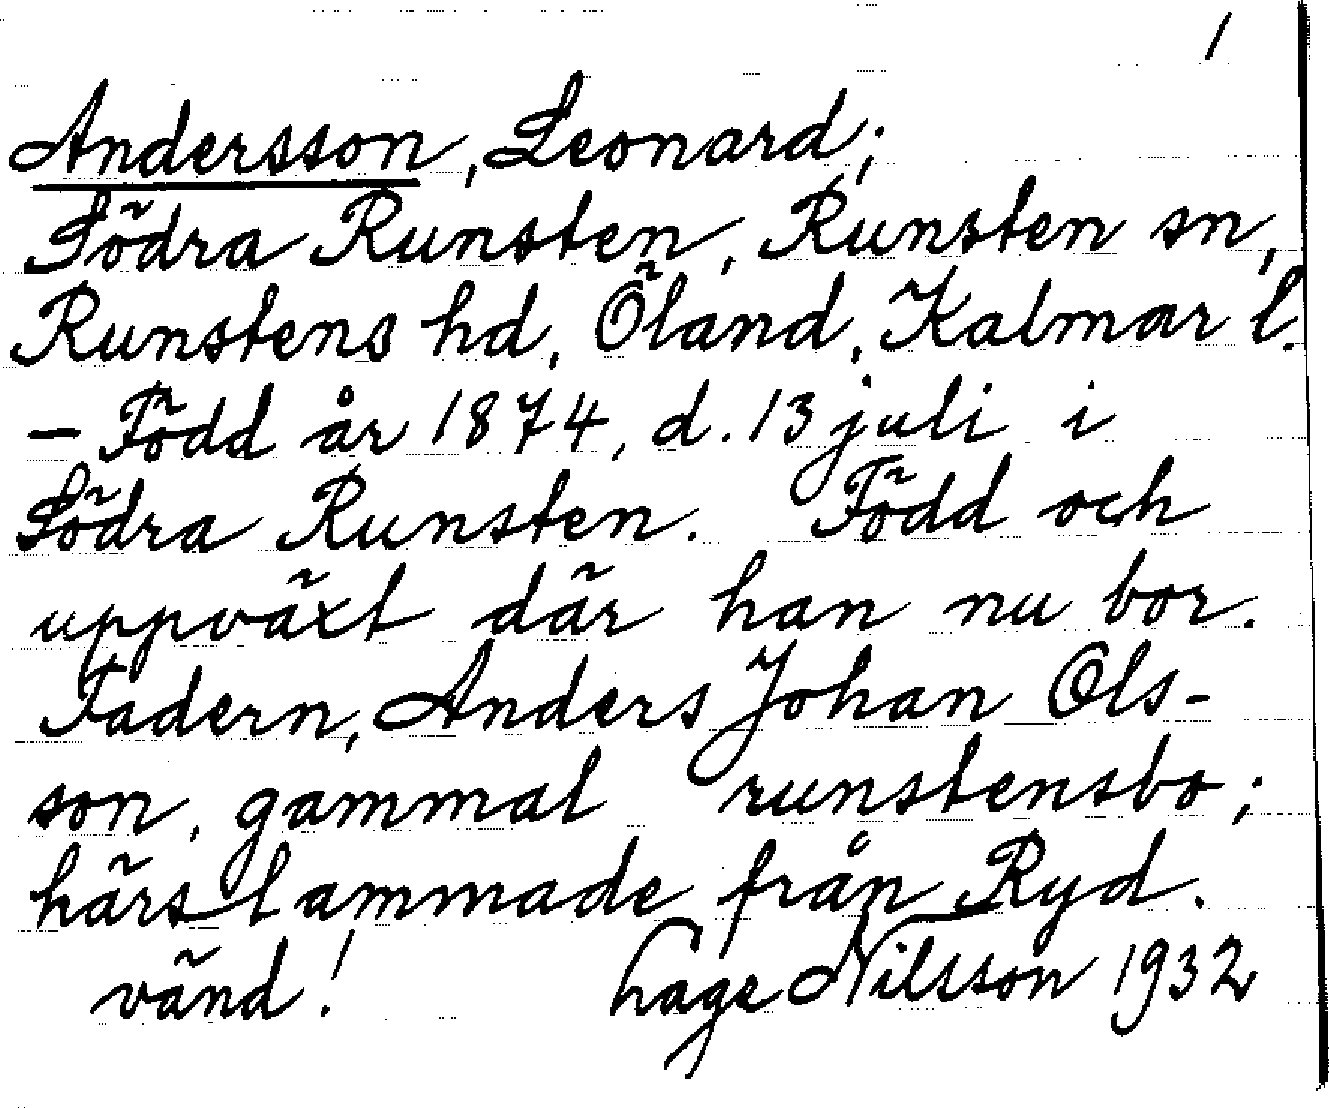 1
Andersson, Leonard;
Södra Runsten, Runsten sn,
Runstens hd, Öland, Kalmar l.
- Född år 1874, d. 13 juli i
Södra Runsten. Född och
uppväxt där han nu bor.
Fadern, Anders Johan Ols-
son, gammal runstensbo;
härstammade från Ryd.
vänd! Hage Nilsson 1932